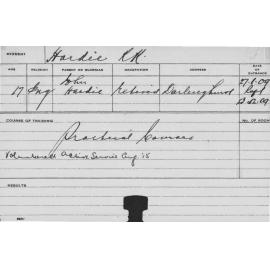 STUDENT Hardie R.K.
AGE RELIGION PARENT OR GUARDIAN OCCUPATION ADDRESS DATE OF ENTRANCE
John 27.1.09
17 Eng Hardie retired Darlinghurst Left
COURSE OF TRAINING NO. OF ROOM
Practical Courses
Volunteered active Service Aug '15
RESULTS